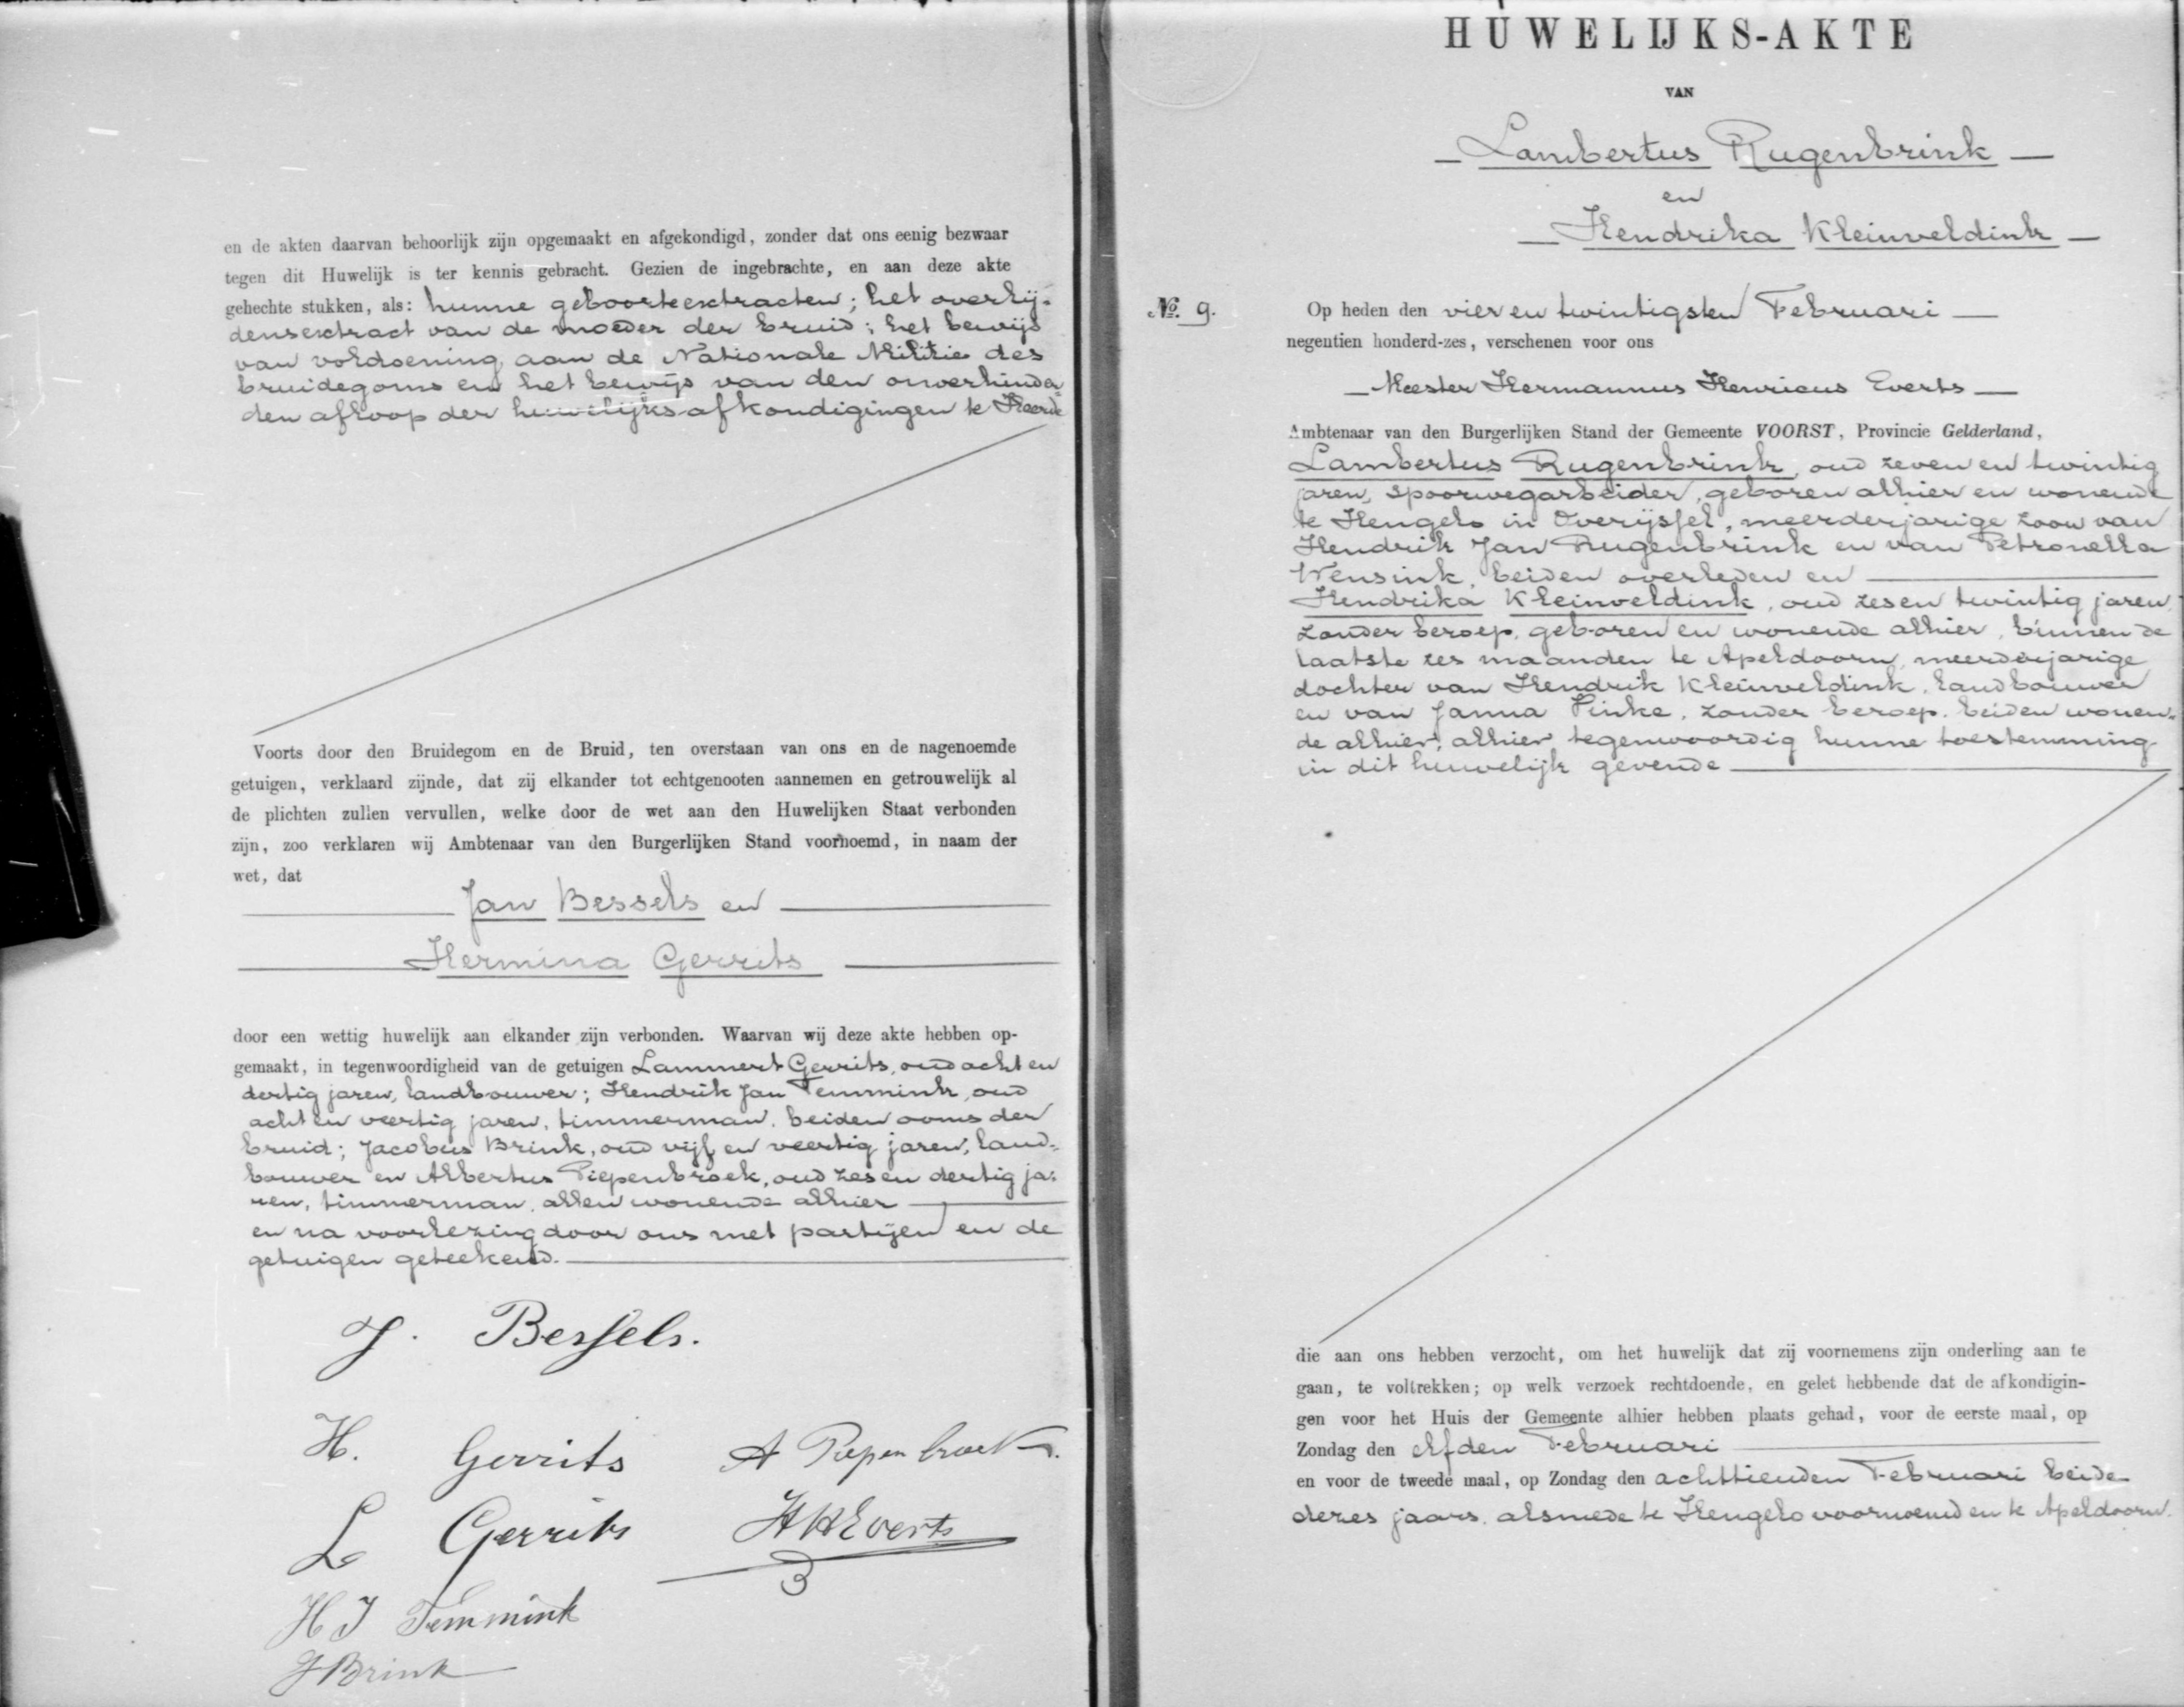 en de akten daarvan behoorlijk zijn opgemaakt en afgekondigd, zonder dat ons eenig bezwaar
tegen dit Huwelijk is ter kennis gebracht. Gezien de ingebrachte, en aan deze akte
gehechte stukken, als: hunne geboorteextracten; het overlij-
densextract van de moeder der bruid; het bewijs
van voldoening aan de Nationale Militie des
bruidegoms en het bewijs van den onverhinder
den afloop der huwelijksafkondigingen te Heerde
Voorts door den Bruidegom en de Bruid, ten overstaan van ons en de nagenoemde
getuigen, verklaard zijnde, dat zij elkander tot echtgenooten aannemen en getrouwelijk al
de plichten zullen vervullen, welke door de wet aan den Huwelijken Staat verbonden
zijn, zoo verklaren wij Ambtenaar van den Burgerlijken Stand voornoemd, in naam der
wet, dat
Jan Bessels en
Hermina Gerrits
door een wettig huwelijk aan elkander zijn verbonden. Waarvan wij deze akte hebben op-
gemaakt, in tegenwoordigheid van de getuigen Lammert Gerrits, oud acht en
dertig jaren, landbouwer; Hendrik Jan Temmink, oud
acht en veertig jaren, timmerman, beiden ooms der
bruid; Jacobus Brink, oud vijf en veertig jaren, land-
bouwer en Albertus Piepenbroek, oud zes en dertig ja-
ren, timmerman, allen wonende alhier
en na voorlezing door ons met partijen en de
getuigen geteekend.
J. Bessels.
H. Gerrits A Piepenbroek.
L Gerrits HHEverts
H J Temmink
J Brink
HUWELIJKS-AKTE
VAN
Lambertus Rugenbrink
en
Hendrika Kleinveldink
No. 9.
Op heden den vier en twintigsten Februari
negentien honderd-zes, verschenen voor ons
Meester Hermannus Henricus Everts
Ambtenaar van den Burgerlijken Stand der Gemeente VOORST, Provincie Gelderland,
Lambertus Rugenbrink, oud zeven en twintig
jaren, spoorwegarbeider, geboren alhier en wonende
te Hengelo in Overijssel, meerderjarige zoon van
Hendrik Jan Rugenbrink en van Petronella
Wensink, beiden overleden en
Hendrika Kleinveldink, oud zes en twintig jaren,
zonder beroep, geboren en wonende alhier, binnen de
laatste zes maanden te Apeldoorn, meerderjarige
dochter van Hendrik Kleinveldink, landbouwer
en van Janna Pinke, zonder beroep, beiden wonen-
de alhier, alhier tegenwoordig hunne toestemming
in dit huwelijk gevende
die aan ons hebben verzocht, om het huwelijk dat zij voornemens zijn onderling aan te
gaan, te voltrekken; op welk verzoek rechtdoende, en gelet hebbende dat de afkondigin-
gen voor het Huis der Gemeente alhier hebben plaats gehad, voor de eerste maal, op
Zondag den elfden Februari
en voor de tweede maal, op Zondag den achttienden Februari beide
dezes jaars, alsmede te Hengelo voornoemd en te Apeldoorn.